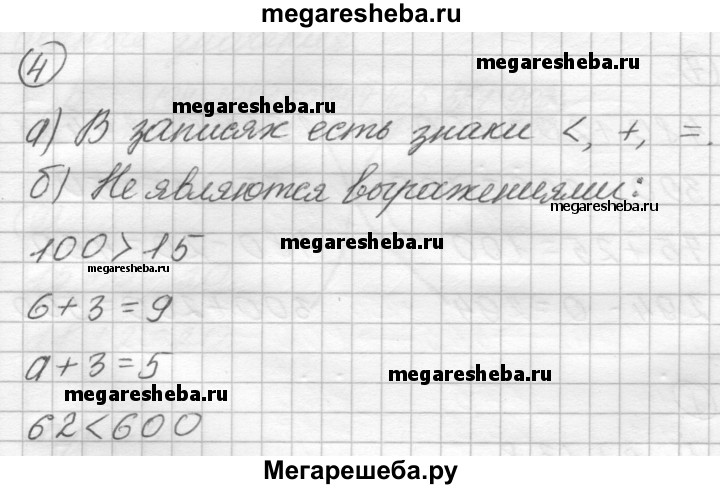 megaresheba.ru
4
megaresheba.ru
megaresheba.ru
а) В записях есть знаки <, +, =.
б) Не являются выражениями:
megaresheba.ru
100 > 15
megaresheba.ru
megaresheba.ru
6 + 3 = 9
а + 3 = 5
megaresheba.ru
megaresheba.ru
62 < 600
Мегарешеба.ру